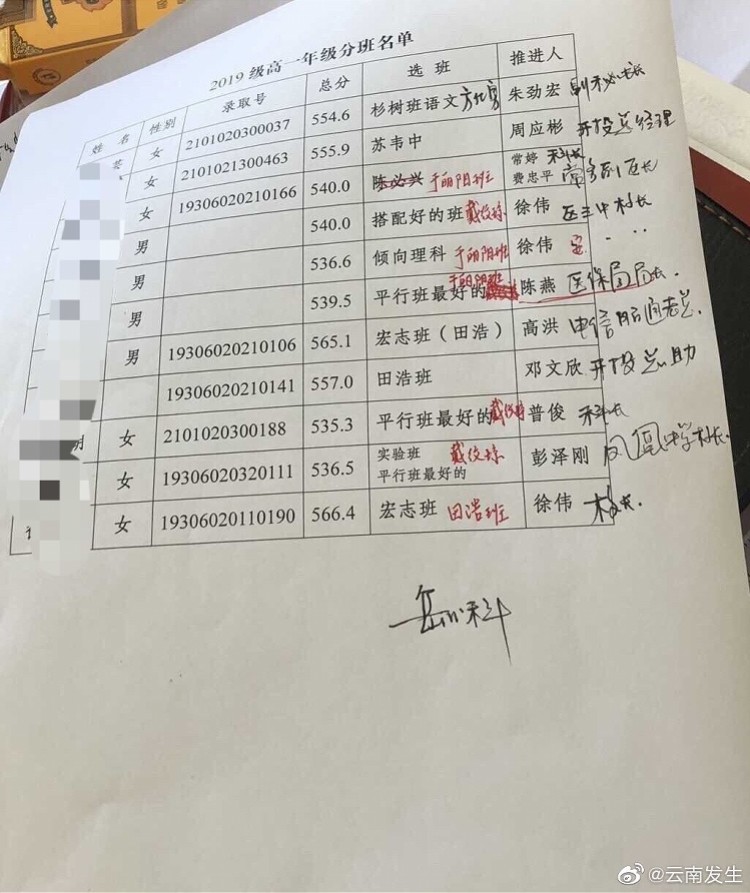 2019级高一年级分班名单
姓 名 性别 录取号 总分 选 班 推进人
女 2101020300037 554.6 杉树班语文 朱劲宏
女 2101021300463 555.9 苏韦中 周应彬 开投总经理
女 19306020210166 540.0 陈必兴 于丽阳班 常婷 科长 费忠平
男 540.0 搭配好的班 戴俊琼 徐伟
男 536.6 倾向理科 于丽阳班 徐伟
男 539.5 平行班最好的 于丽阳班 陈燕 医保局局长
男 19306020210106 565.1 宏志班（田浩） 高洪
19306020210141 557.0 田浩班 邓文欣 开投总助
女 2101020300188 535.3 平行班最好的 戴俊琼 普俊 科长
女 19306020320111 536.5 实验班 戴俊琼 彭泽刚 凤凰中学校长
平行班最好的
女 19306020110190 566.4 宏志班 田浩班 徐伟 校长
@云南发生